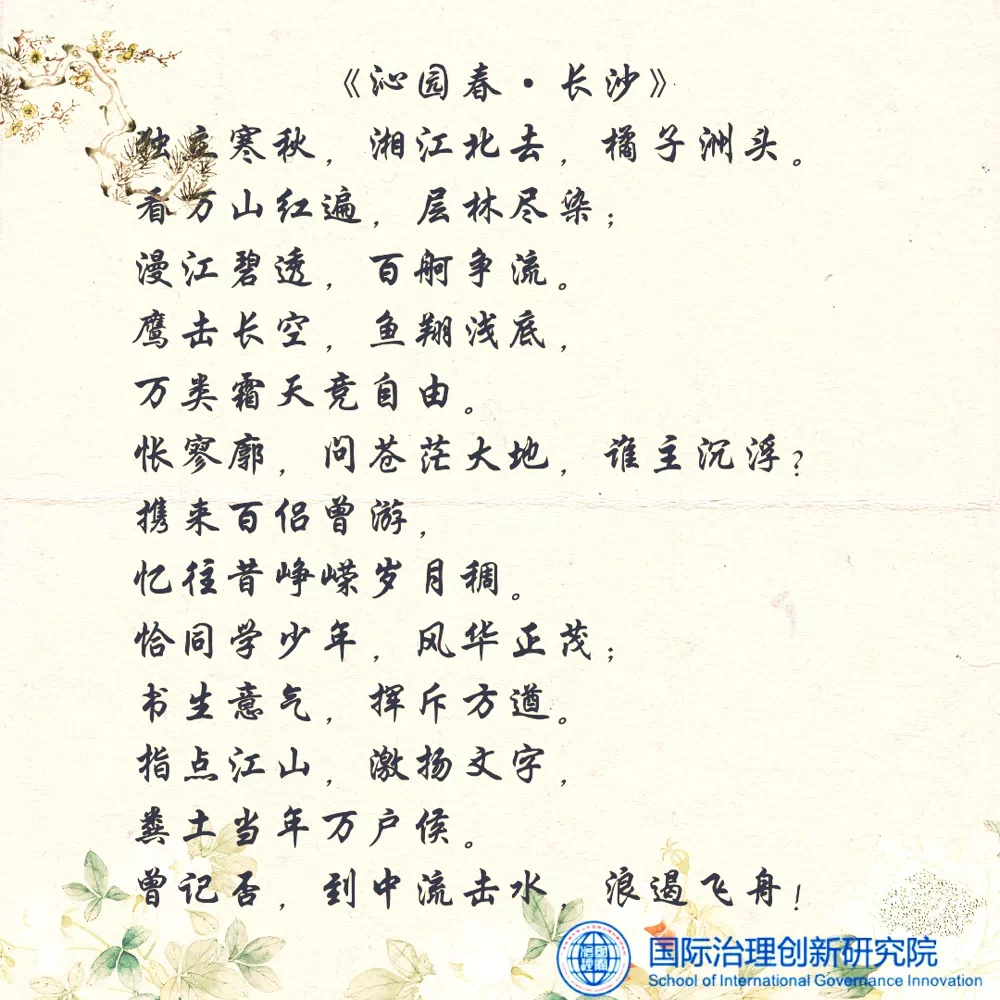 《沁园春·长沙》
独立寒秋，湘江北去，橘子洲头。
看万山红遍，层林尽染；
漫江碧透，百舸争流。
鹰击长空，鱼翔浅底，
万类霜天竞自由。
怅寥廓，问苍茫大地，谁主沉浮？
携来百侣曾游，
忆往昔峥嵘岁月稠。
恰同学少年，风华正茂；
书生意气，挥斥方遒。
指点江山，激扬文字，
粪土当年万户侯。
曾记否，到中流击水，浪遏飞舟！
国际治理创新研究院
School of International Governance Innovation